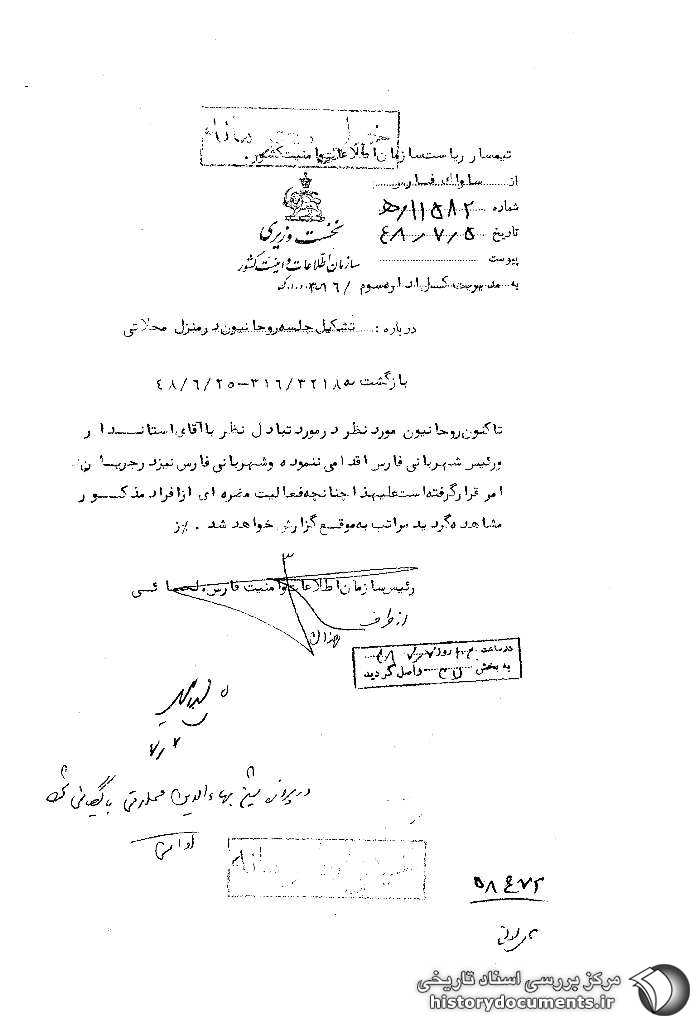 خیلی محرمانه
تیمسار ریاست سازمان اطلاعات و امنیت کشور.
از ساواک فارس
شماره ۱۱۵۸۲/ھ
نخست وزیری
تاریخ ۴۸/۷/۵
سازمان اطلاعات و امنیت کشور
پیوست
به مدیریت کل اداره سوم / ۳۱۶
درباره: تشکیل جلسه روحانیون در منزل محلاتی
بازگشت به ۳۱۶/۳۲۱۸۵-۴۸/۶/۲۵
تاکنون روحانیون مورد نظر در مورد تبادل نظر با آقای استاندار
و رئیس شهربانی فارس اقدامی ننموده و شهربانی فارس نیز در جریان
امر قرار گرفته است علیهذا چنانچه فعالیت مضره ای از افراد مذکور
مشاهده گردید مراتب به موقع گزارش خواهد شد. /ز
رئیس سازمان اطلاعات و امنیت فارس.
از طرف
در ساعت روز
به بخش واصل گردید
۷/۷
در پرونده شیخ بهاءالدین محلاتی بایگانی شود
خیلی محرمانه
۵۸۴۷۲
مرکز بررسی اسناد تاریخی
historydocuments.ir